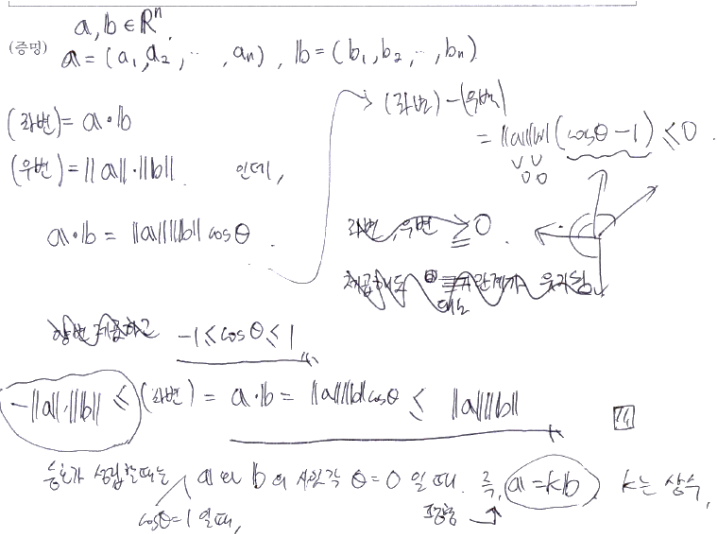 a, b ∈ ℝⁿ.
(증명) a = (a₁, a₂, ⋯, aₙ), b = (b₁, b₂, ⋯, bₙ)
(좌변) = a·b
(우변) = ||a||·||b|| 인데,
a·b = ||a||||b|| cosθ.
→ (좌변) - (우변)
= ||a||||b|| (cosθ - 1) ≤ 0.
좌변, 우변 ≥ 0.
양변 제곱하고 -1 ≤ cosθ ≤ 1
-||a||·||b|| ≤ (좌변) = a·b = ||a||||b|| cosθ ≤ ||a||||b||
등호가 성립할때는 a와 b의 사잇각 θ = 0 일때. 즉, a = kb, k는 상수,
cosθ = 1 일때, 평행